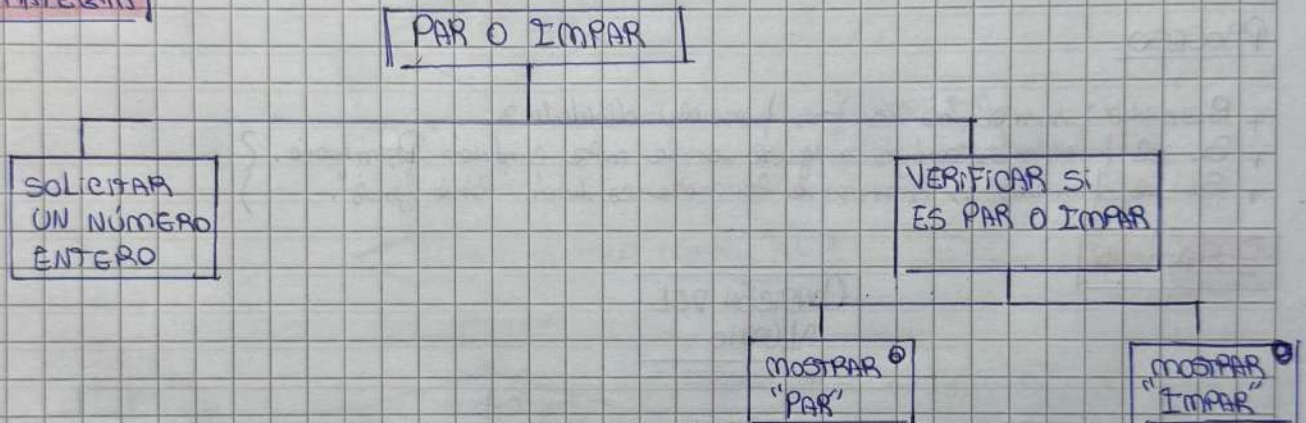 PAR O IMPAR
SOLICITAR
UN NÚMERO
ENTERO
VERIFICAR SI
ES PAR O IMPAR
MOSTRAR
"PAR"
MOSTRAR
"IMPAR"